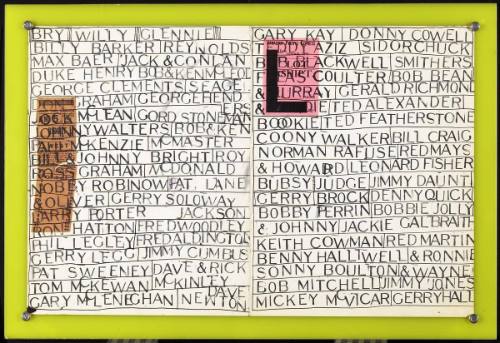 BRY WILLY GLENNIE
BILLY BARKER REYNOLDS
MAX BAER JACK & CONLAN
DUKE HENRY BOB & KEN
GEORGE CLEMENTS SEAGE
GRAHAM GEORGE
MCLEAN GORD STONEMAN
JOHNNY WALTERS BOB & KEN
MCKENZIE MCMASTER
BILL & JOHNNY BRIGHT ROY
ROSS GRAHAM MCDONALD
NOBBY ROBINOW PAT. LANE
& OLIVER GERRY SOLOWAY
LARRY PORTER JACKSON
RON HATTON FRED WOODLEY
PHIL LEGLEY FRED ALDINGTON
GERRY LEGG JIMMY CUMBUS
PAT SWEENEY DAVE & RICK
TOM MCKEWAN MCKINLEY DAVE
GARY MCLENEGHAN NEWTON
GARY KAY DONNY COWELL
EDDY AZIZ SIDORCHUCK
BLACKWELL SMITHERS
COULTER BOB BEAN
& MURRAY GERALD RICHMOND
L
TED ALEXANDER
BOOK TED FEATHERSTONE
COONY WALKER BILL CRAIG
NORMAN RAFUSE RED MAYS
& HOWARD LEONARD FISHER
BUBSY JUDGE JIMMY DAUNT
GERRY BROCK DENNY QUICK
BOBBY PERRIN BOBBIE JOLLY
& JOHNNY JACKIE GALBRAITH
KEITH COWMAN RED MARTIN
BENNY HALLWELL & RONNIE
SONNY BOULTON & WAYNE
BOB MITCHELL JIMMY JONES
MICKEY MCVICAR GERRY HALL